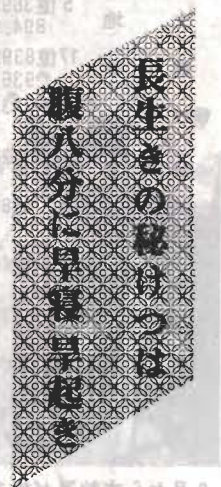 長生きの秘けつは
腹八分に早寝早起き